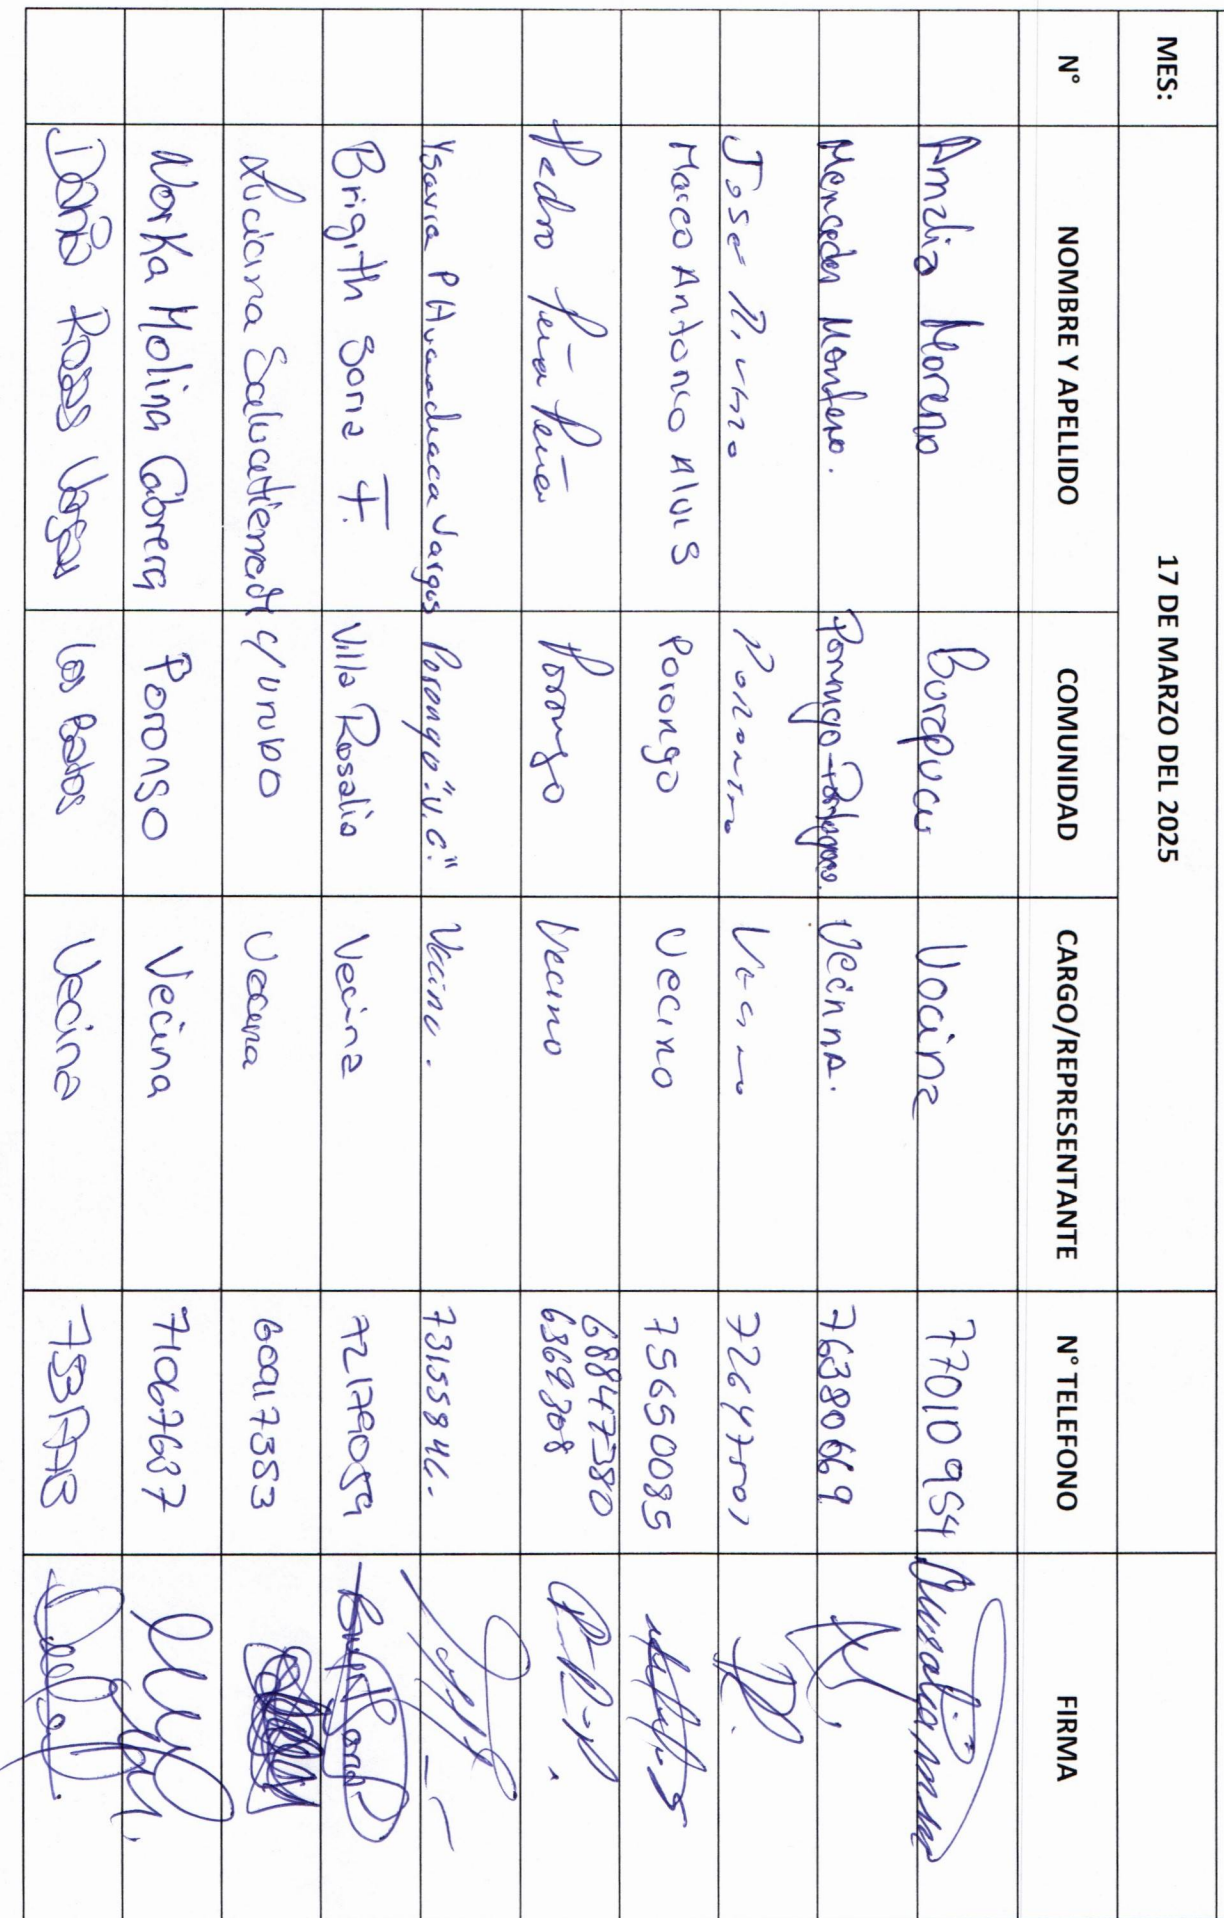 MES: 17 DE MARZO DEL 2025
N° NOMBRE Y APELLIDO COMUNIDAD CARGO/REPRESENTANTE N° TELEFONO FIRMA
Amalia Moreno Vocina 77010954
Mercedes Montero. Vecina. 76380669
Jose
Marco Antonio Alvis Porongo Vecino 75650085
Pedro Peña Peña Porongo Vecino 68847380
6369308
Ysavra P Huanchaca Vargas Porongo "V.C." 7315584
Brigith Soria F. Villa Rosalia Vecina 72179059
Luciana Salvatierra c/urubo Vecina 60917353
Norka Molina Cabrera Porongo Vecina 71067637
Rosas Vargas Los Batos Vecina